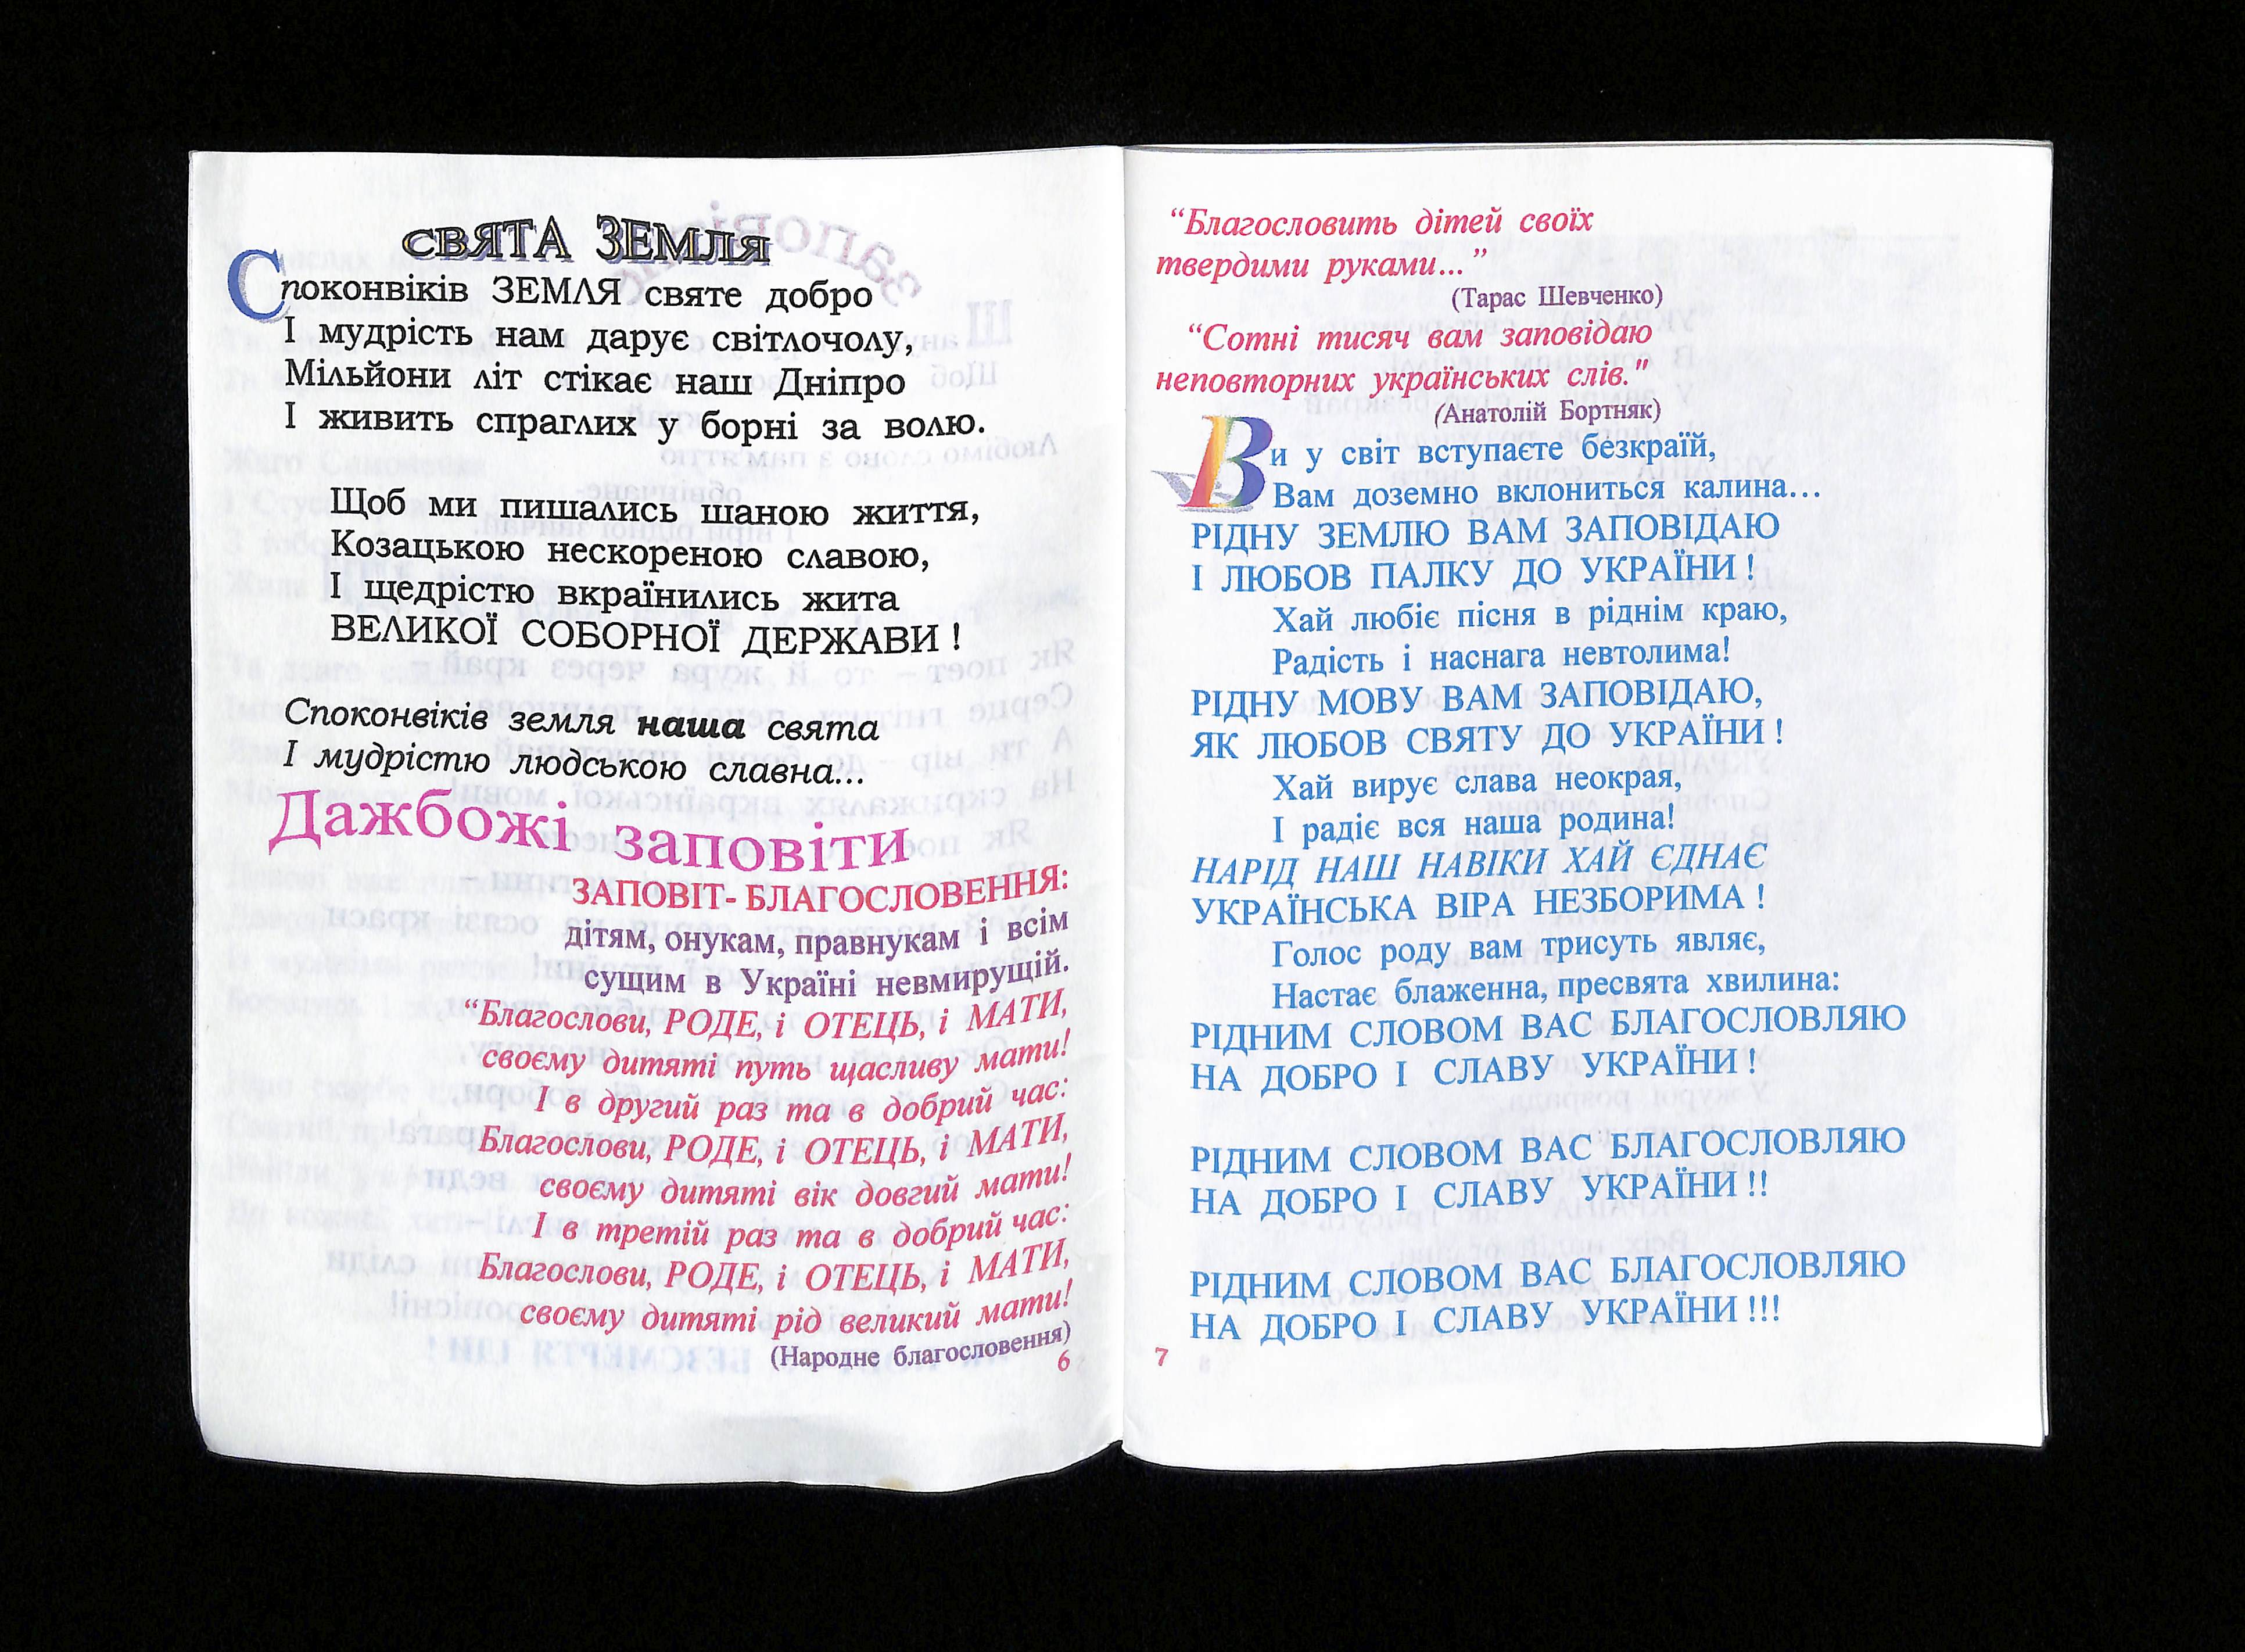 СВЯТА ЗЕМЛЯ
Споконвіків ЗЕМЛЯ святе добро
І мудрість нам дарує світлочолу,
Мільйони літ стікає наш Дніпро
І живить спраглих у борні за волю.
Щоб ми пишались шаною життя,
Козацькою нескореною славою,
І щедрістю вкраїнились жита
ВЕЛИКОЇ СОБОРНОЇ ДЕРЖАВИ !
Споконвіків земля наша свята
І мудрістю людською славна...
Дажбожі заповіти
ЗАПОВІТ- БЛАГОСЛОВЕННЯ:
дітям, онукам, правнукам і всім
сущим в Україні невмирущій.
“Благослови, РОДЕ, і ОТЕЦЬ, і МАТИ,
своєму дитяті путь щасливу мати!
І в другий раз та в добрий час:
Благослови, РОДЕ, і ОТЕЦЬ, і МАТИ,
своєму дитяті вік довгий мати!
І в третій раз та в добрий час:
Благослови, РОДЕ, і ОТЕЦЬ, і МАТИ,
своєму дитяті рід великий мати!
(Народне благословення)
6
“Благословить дітей своїх
твердими руками...”
(Тарас Шевченко)
“Сотні тисяч вам заповідаю
неповторних українських слів."
(Анатолій Бортняк)
Ви у світ вступаєте безкраїй,
Вам доземно вклониться калина...
РІДНУ ЗЕМЛЮ ВАМ ЗАПОВІДАЮ
І ЛЮБОВ ПАЛКУ ДО УКРАЇНИ !
Хай любіє пісня в ріднім краю,
Радість і наснага невтолима!
РІДНУ МОВУ ВАМ ЗАПОВІДАЮ,
ЯК ЛЮБОВ СВЯТУ ДО УКРАЇНИ !
Хай вирує слава неокрая,
І радіє вся наша родина!
НАРІД НАШ НАВІКИ ХАЙ ЄДНАЄ
УКРАЇНСЬКА ВІРА НЕЗБОРИМА !
Голос роду вам трисуть являє,
Настає блаженна, пресвята хвилина:
РІДНИМ СЛОВОМ ВАС БЛАГОСЛОВЛЯЮ
НА ДОБРО І СЛАВУ УКРАЇНИ !
РІДНИМ СЛОВОМ ВАС БЛАГОСЛОВЛЯЮ
НА ДОБРО І СЛАВУ УКРАЇНИ !!
РІДНИМ СЛОВОМ ВАС БЛАГОСЛОВЛЯЮ
НА ДОБРО І СЛАВУ УКРАЇНИ !!!
7